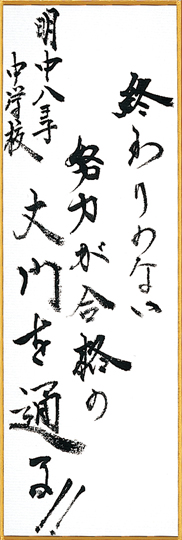 終わりのない
努力が合格の
大門を通る!!
明中八王子
中学校